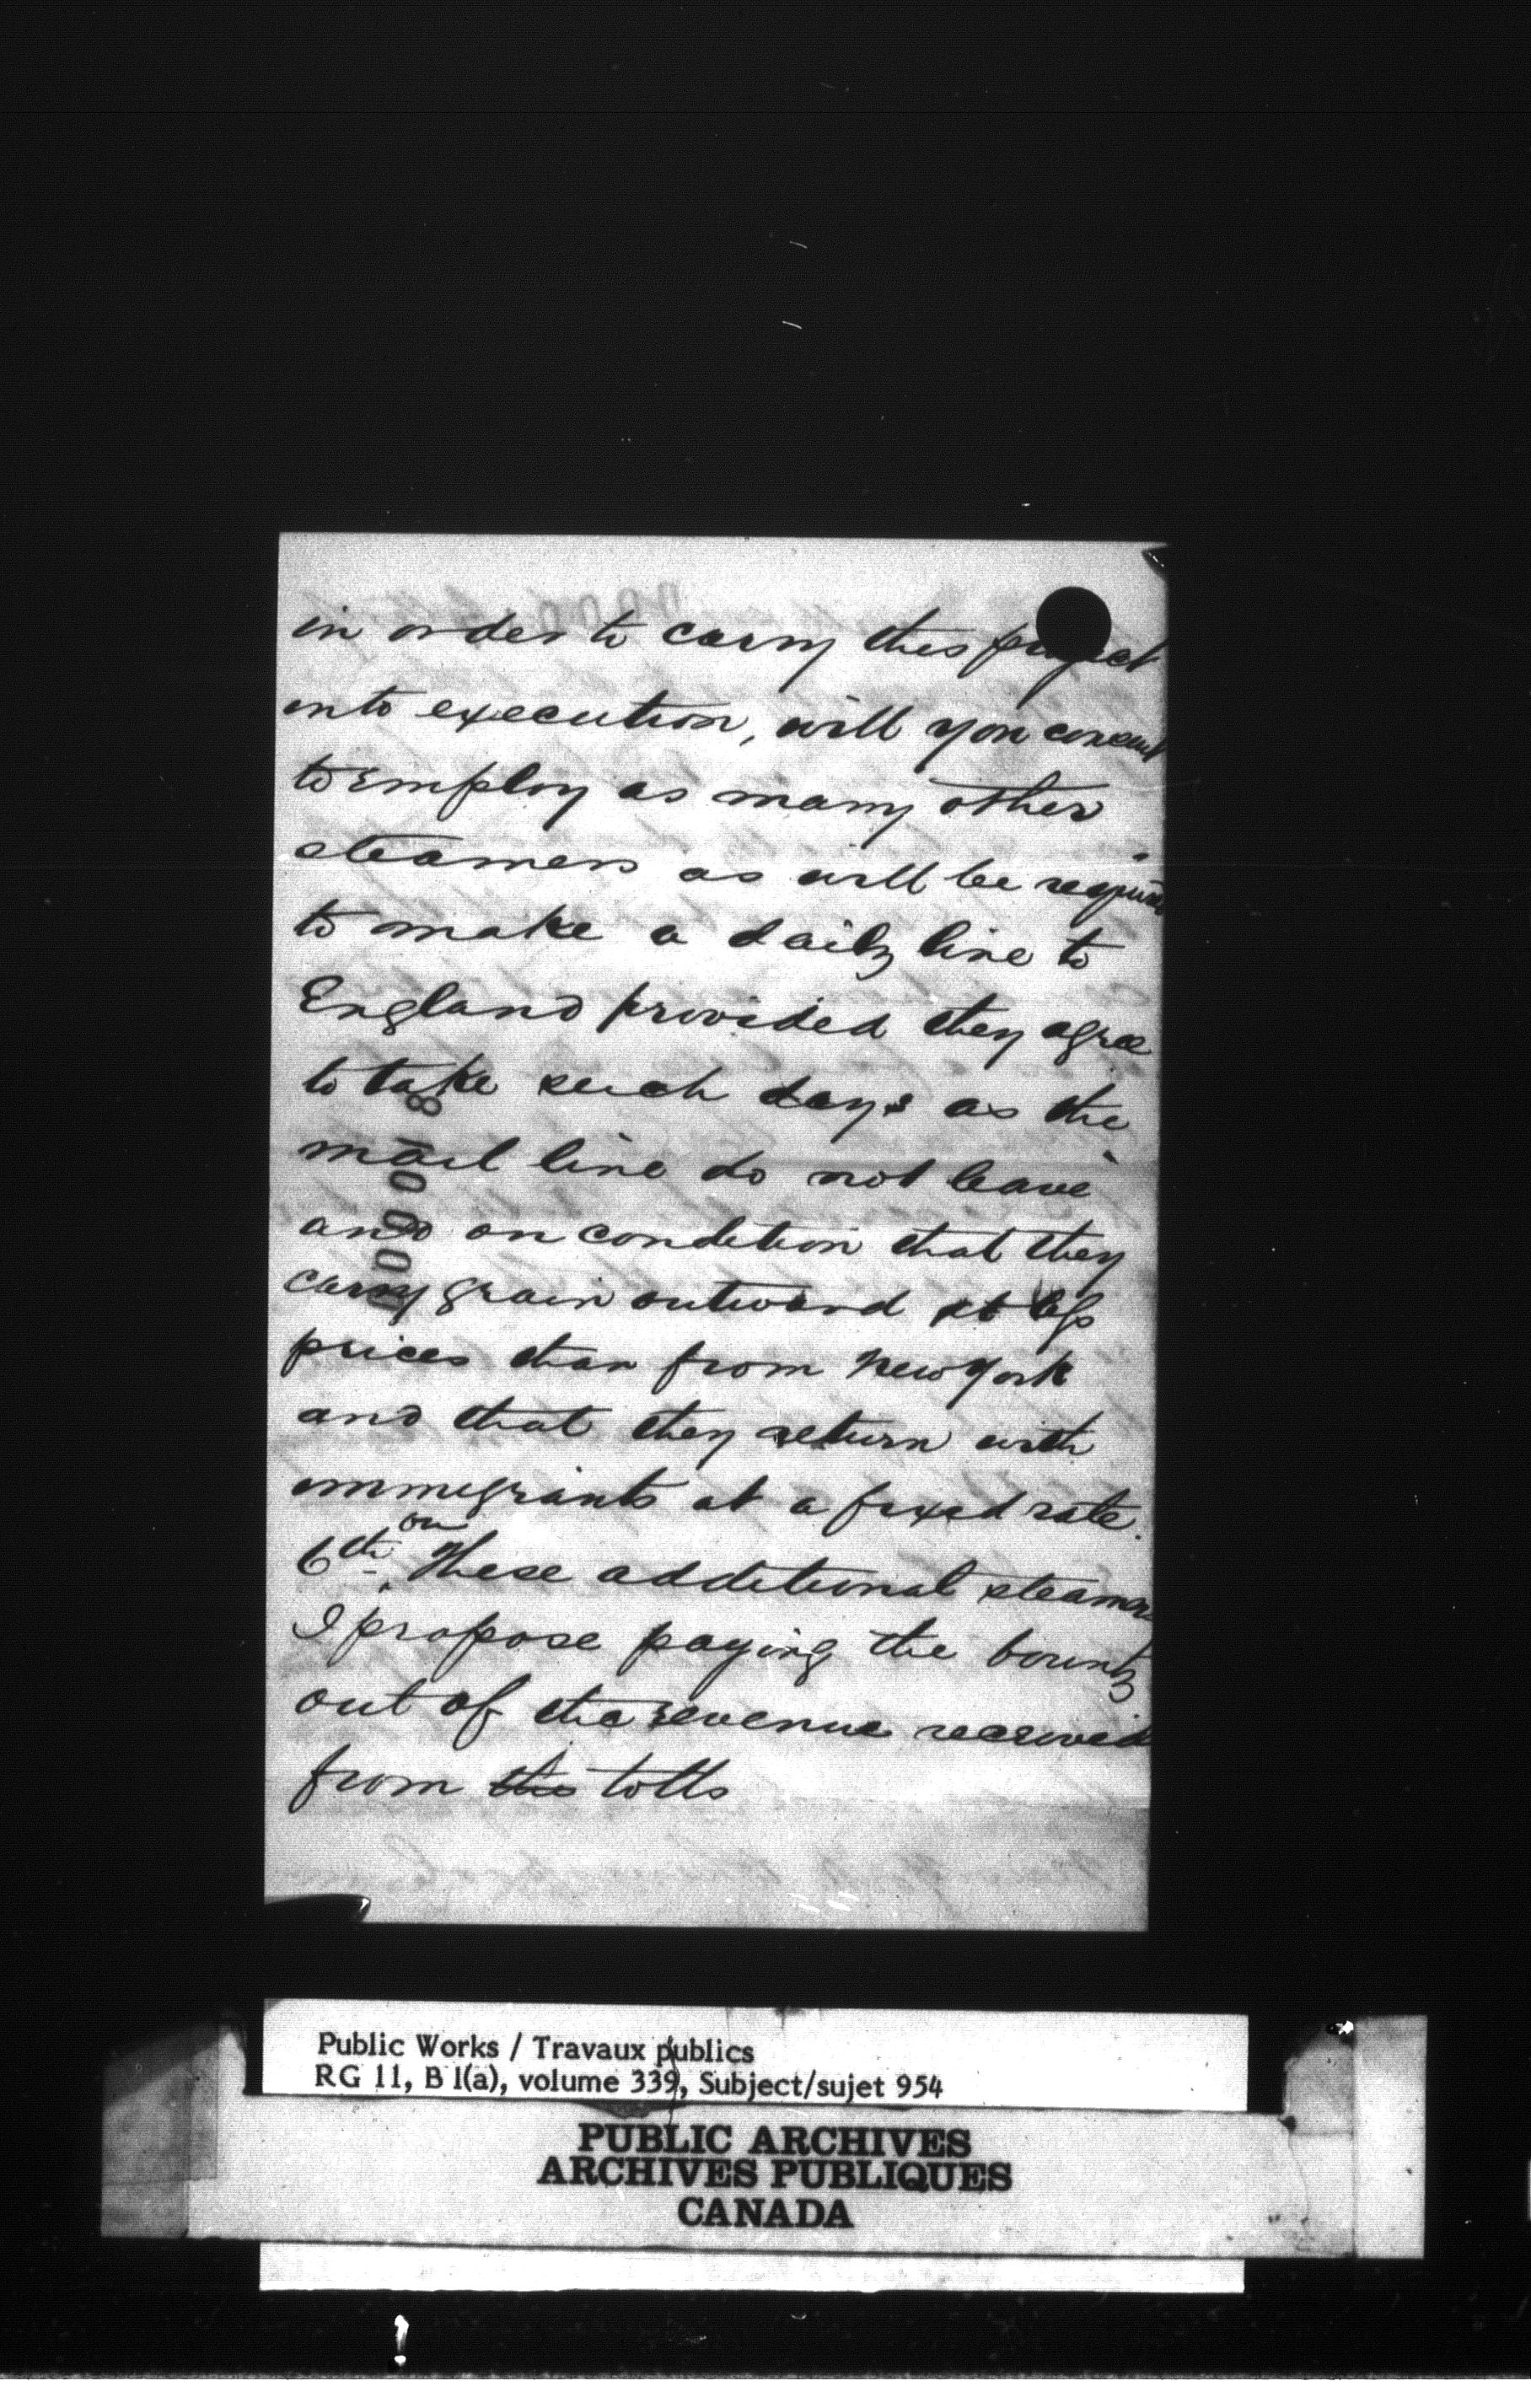 in order to carry this project
into execution, will you consent
to employ as many other
steamers as will be required
to make a daily line to
England provided they agree
to take such days as the
mail line do not leave
and on condition that they
carry grain outward at less
prices than from New York
and that they return with
immigrants at a fixed rate.
6th. on These additional steamers
I propose paying the bounty
out of the revenue received
from the tolls
Public Works / Travaux publics
RG 11, B 1(a), volume 339, Subject/sujet 954
PUBLIC ARCHIVES
ARCHIVES PUBLIQUES
CANADA